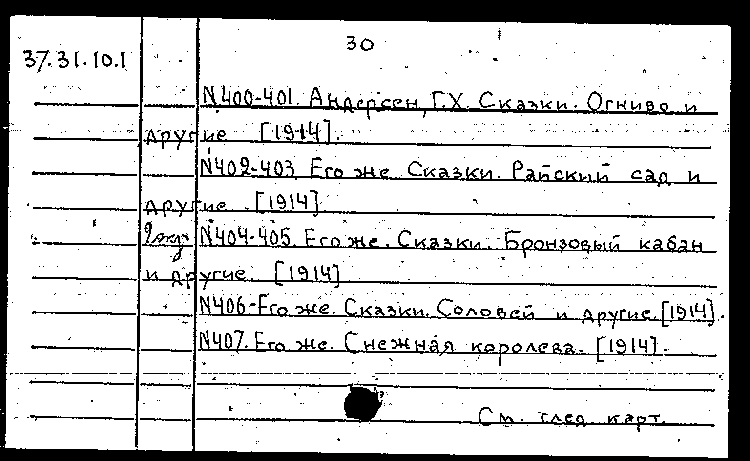 30
37.31.10.1
N400-401. Андерсен, Г.Х. Сказки. Огниво и
другие [1914].
N402-403. Его же. Сказки. Райский сад и
другие. [1914]
N404-405. Его же. Сказки. Бронзовый кабан
и другие. [1914]
N406-Его же. Сказки. Соловей и другие [1914].
N407. Его же. Снежная королева. [1914].
См. след. карт.